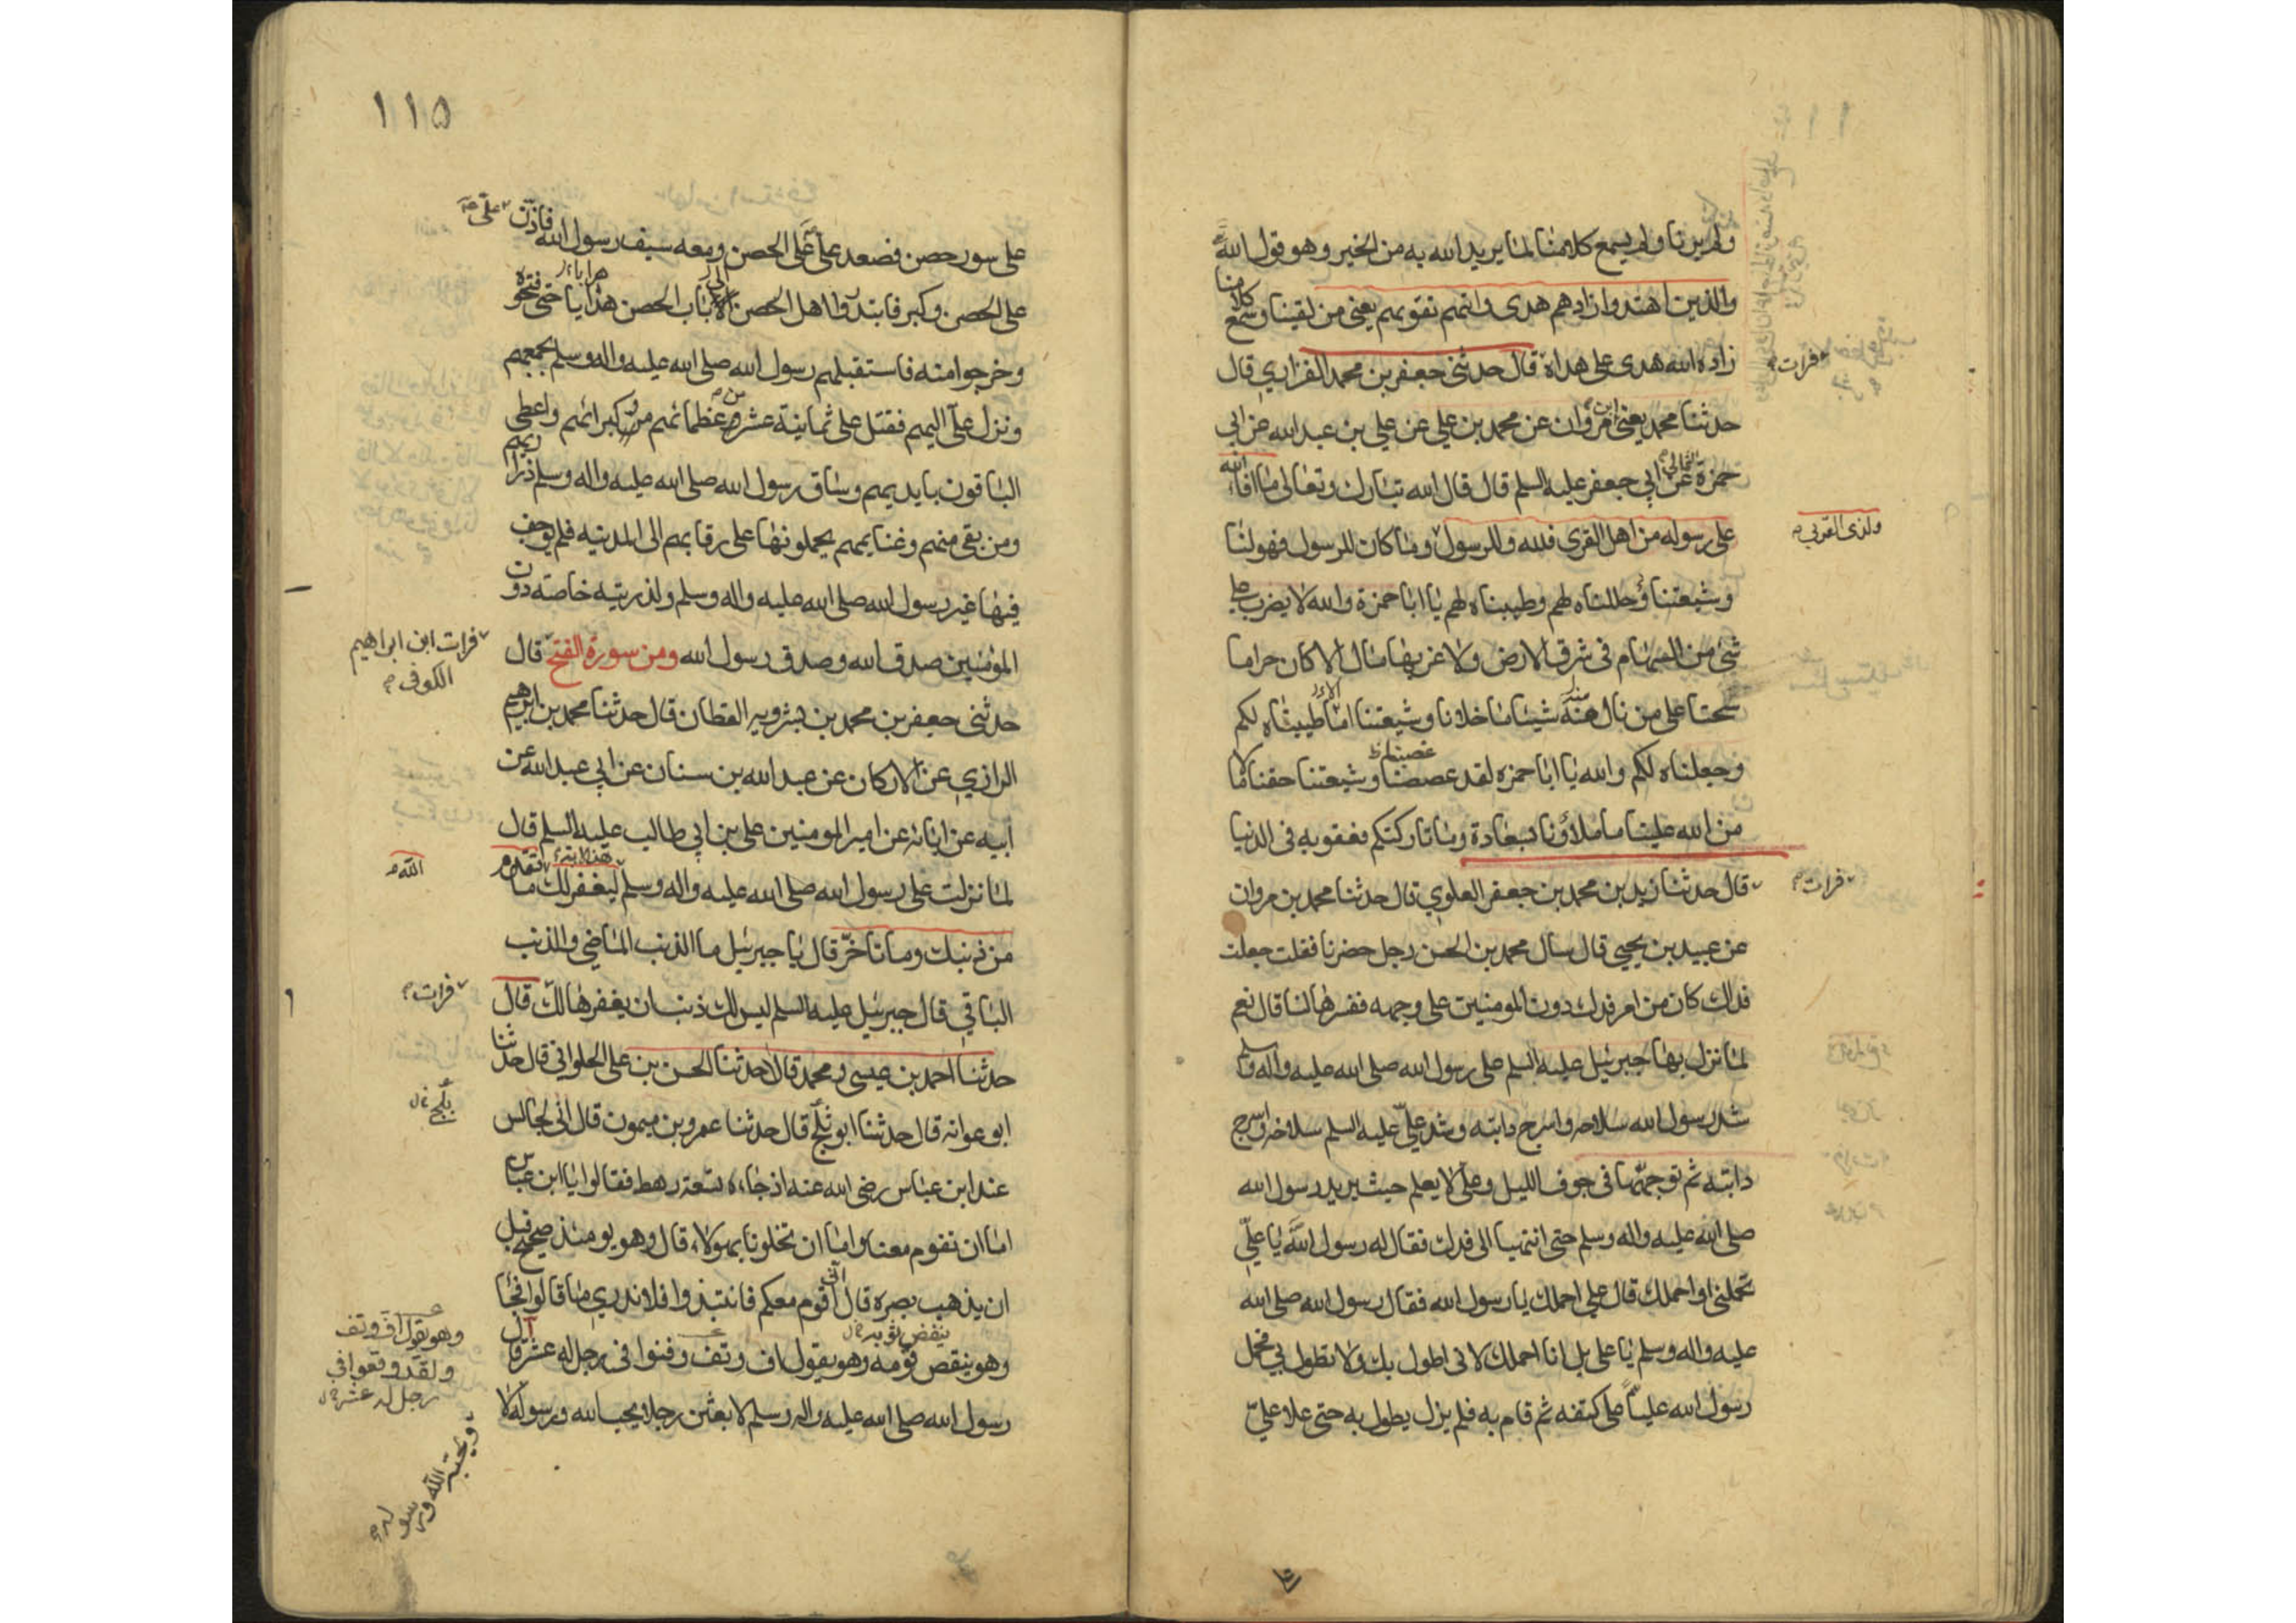 ولم يرنا ولم يسمع كلامنا لما يريد الله به من الخير وهو قول الله
والذين اهتدوا زادهم هدى واتيهم تقويهم يعنى من لقينا وسمع كلامنا
زاده الله هدى على هداه قال حدثنى جعفر بن محمد الفزاري قال
فرات
حدثنا محمد يعنى ابن مروان عن محمد بن علي عن علي بن عبد الله عن ابي
حمزة الثمالي عن ابي جعفر عليه السلم قال قال الله تبارك وتعالى ما افاء الله
على رسوله من اهل القرى فلله وللرسول وما كان للرسول فهو لنا
ولذى القربى
وشيعتنا حللناه لهم وطيبناه لهم يا ابا حمزة والله لا يضرب على
شئ من السهام فى شرق الارض ولا غربها مال الا كان حراما
سحتا على من نال منه شيئا ما خلانا وشيعتنا انا طيبناه لكم
وجعلناه لكم والله يا ابا حمزه لقد غصبنا وشيعتنا حقنا مالا
من الله علينا ما ملاؤنا بسعادة وما تاركتكم بعقوبه فى الدنيا
قال حدثنا زيد بن محمد بن جعفر العلوي قال حدثنا محمد بن مروان
فرات
عن عبيد بن يحيى قال سال محمد بن الحسن رجل حضرنا فقلت جعلت
فداك كان من امر فدك دون المومنين على وجهه ففسرها لنا قال نعم
لما نزل بها جبرئيل عليه السلم على رسول الله صلى الله عليه واله وسلم
شد رسول الله سلاحه واسرج دابته وشد علي عليه السلم سلاحه واسرج
دابته ثم توجها فى جوف الليل وعلى لا يعلم حيث يريد رسول الله
صلى الله عليه واله وسلم حتى انتهيا الى فدك فقال له رسول الله يا علي
تحملنى او احملك قال علي احملك يا رسول الله فقال رسول الله صلى الله
عليه واله وسلم يا على بل انا احملك لانى اطول بك ولا تطول بي فحمل
رسول الله عليا على كتفه ثم قام به فلم يزل يطول به حتى علا علي
١١٥
على سور حصن فصعد علي على الحصن ومعه سيف رسول الله فاذن على
على الحصن وكبر فابتدروا اهل الحصن الى باب الحصن هرابا حتى فتحوه
وخرجوا منه فاستقبلهم رسول الله صلى الله عليه واله وسلم بجمعهم
ونزل علي اليهم فقتل على ثمانية عشر من عظمائهم وكبرائهم واعطى
الباقون بايديهم وساق رسول الله صلى الله عليه واله وسلم ذراريهم
ومن بقى منهم وغنايمهم يحملونها على رقابهم الى المدينه فلم يوجف
فيها غير رسول الله صلى الله عليه واله وسلم ولذريته خاصته دون
المؤمنين صدق الله وصدق رسول الله ومن سورة الفتح قال
فرات ابن ابراهيم
الكوفى
حدثنى جعفر بن محمد بن بشرويه القطان قال حدثنا محمد بن ابرهيم
الرازي عن الاركان عن عبد الله بن سنان عن ابي عبد الله عن
ابيه عن ابائه عن امير المومنين على بن ابي طالب عليه السلم قال
لما نزلت على رسول الله صلى الله عليه واله وسلم هذه الاية ليغفر لك ما تقدم
الله
من ذنبك وما تاخر قال يا جبرئيل ما الذنب الماضي والذنب
الباقي قال جبرئيل عليه السلم ليس لك ذنب ان يغفرها لك قال
فرات
حدثنا احمد بن عيسى ومحمد قالا حدثنا الحسن بن على الحلوانى قال حدثنا
ابو عوانه قال حدثنا ابو ثلج قال حدثنا عمرو بن ميمون قال انى لجالس
بلج
عند ابن عباس رضى الله عنه اذ جاءه تسعة رهط فقالوا يا ابن عباس
اما ان تقوم معنا واما ان تخلونا بهولاء قال وهو يومئذ صحيح قبل
ان يذهب بصره قال انى اقوم معكم فانتبذوا فلا ندري ما قالوا فجا
ينفض ثوبه
وهو ينقص قومه وهو يقول اف وتف وقنوا فى رجل له عشر قال
وهو يقول اف وتف
ولقد وقعوا في
رجل له عشر
رسول الله صلى الله عليه واله وسلم لابعثن رجلا يحب الله ورسوله لا
ويحبه الله ورسوله